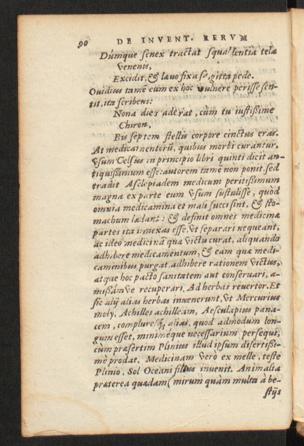 90 DE INVENT. RERVM
Dumque senex tractat squallentia tela
venenis,
Excidit, & laevo fixa sagitta pede.
Ovidius tamē cum ex hoc vulnere perisse sen-
tit, ita scribens:
Nona dies aderat, cùm tu iustissime
Chiron,
Bis septem stellis corpore cinctus eras.
At medicamentorū, quibus morbi curantur,
vsum Celsus in principio libri quinti dicit an-
tiquissimum esse: autorem tamē non ponit. sed
tradit Asclepiadem medicum peritissimum
magna ex parte eum vsum sustulisse, quòd
omnia medicamina et mali succi sint, & sto-
machum laedant: & definit omnes medicinae
partes ita innexas esse, vt separari nequeant,
ac ideo medicinā quae victu curat, aliquando
adhibere medicamentum, & eam quae medi-
caminibus purgat adhibere rationem victus,
atque hoc pacto sanitatem aut conseruari, a-
missámve recuperari. Ad herbas reuertor. Et
sic alij alias herbas inuenerunt, vt Mercurius
moly, Achilles achilleam, Aesculapius pana-
cem, complureśq; alias, quod admodum lon-
gum esset, minimeque necessarium persequi,
cùm praesertim Plinius illud ipsum disertissi-
mè prodat. Medicinam verò ex melle, teste
Plinio, Sol Oceani filius inuenit. Animalia
praeterea quaedam (mirum quàm multa à be-
stijs